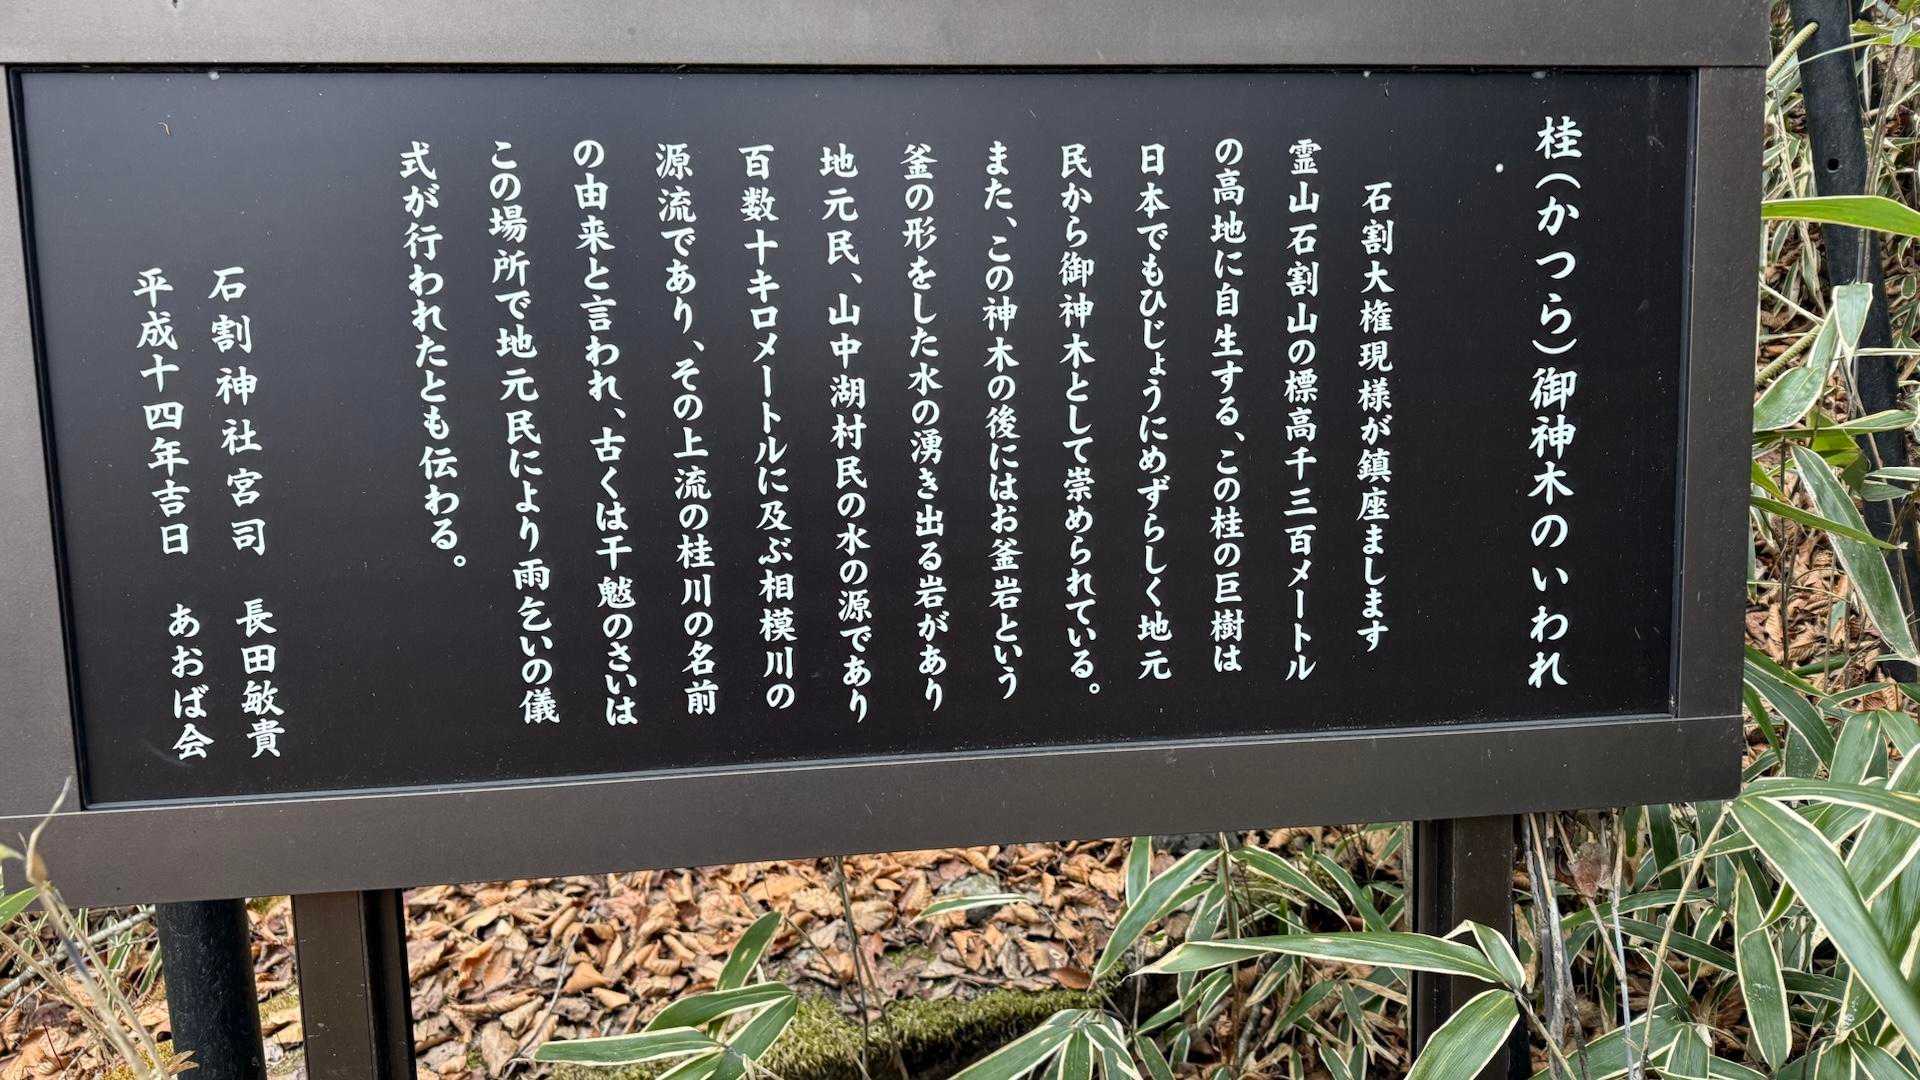 桂(かつら)御神木のいわれ
石割大権現様が鎮座まします
霊山石割山の標高千三百メートル
の高地に自生する、この桂の巨樹は
日本でもひじょうにめずらしく地元
民から御神木として崇められている。
また、この神木の後にはお釜岩という
釜の形をした水の湧き出る岩があり
地元民、山中湖村民の水の源であり
百数十キロメートルに及ぶ相模川の
源流であり、その上流の桂川の名前
の由来と言われ、古くは干魃のさいは
この場所で地元民により雨乞いの儀
式が行われたとも伝わる。
石割神社宮司 長田敏貴
平成十四年吉日 あおば会